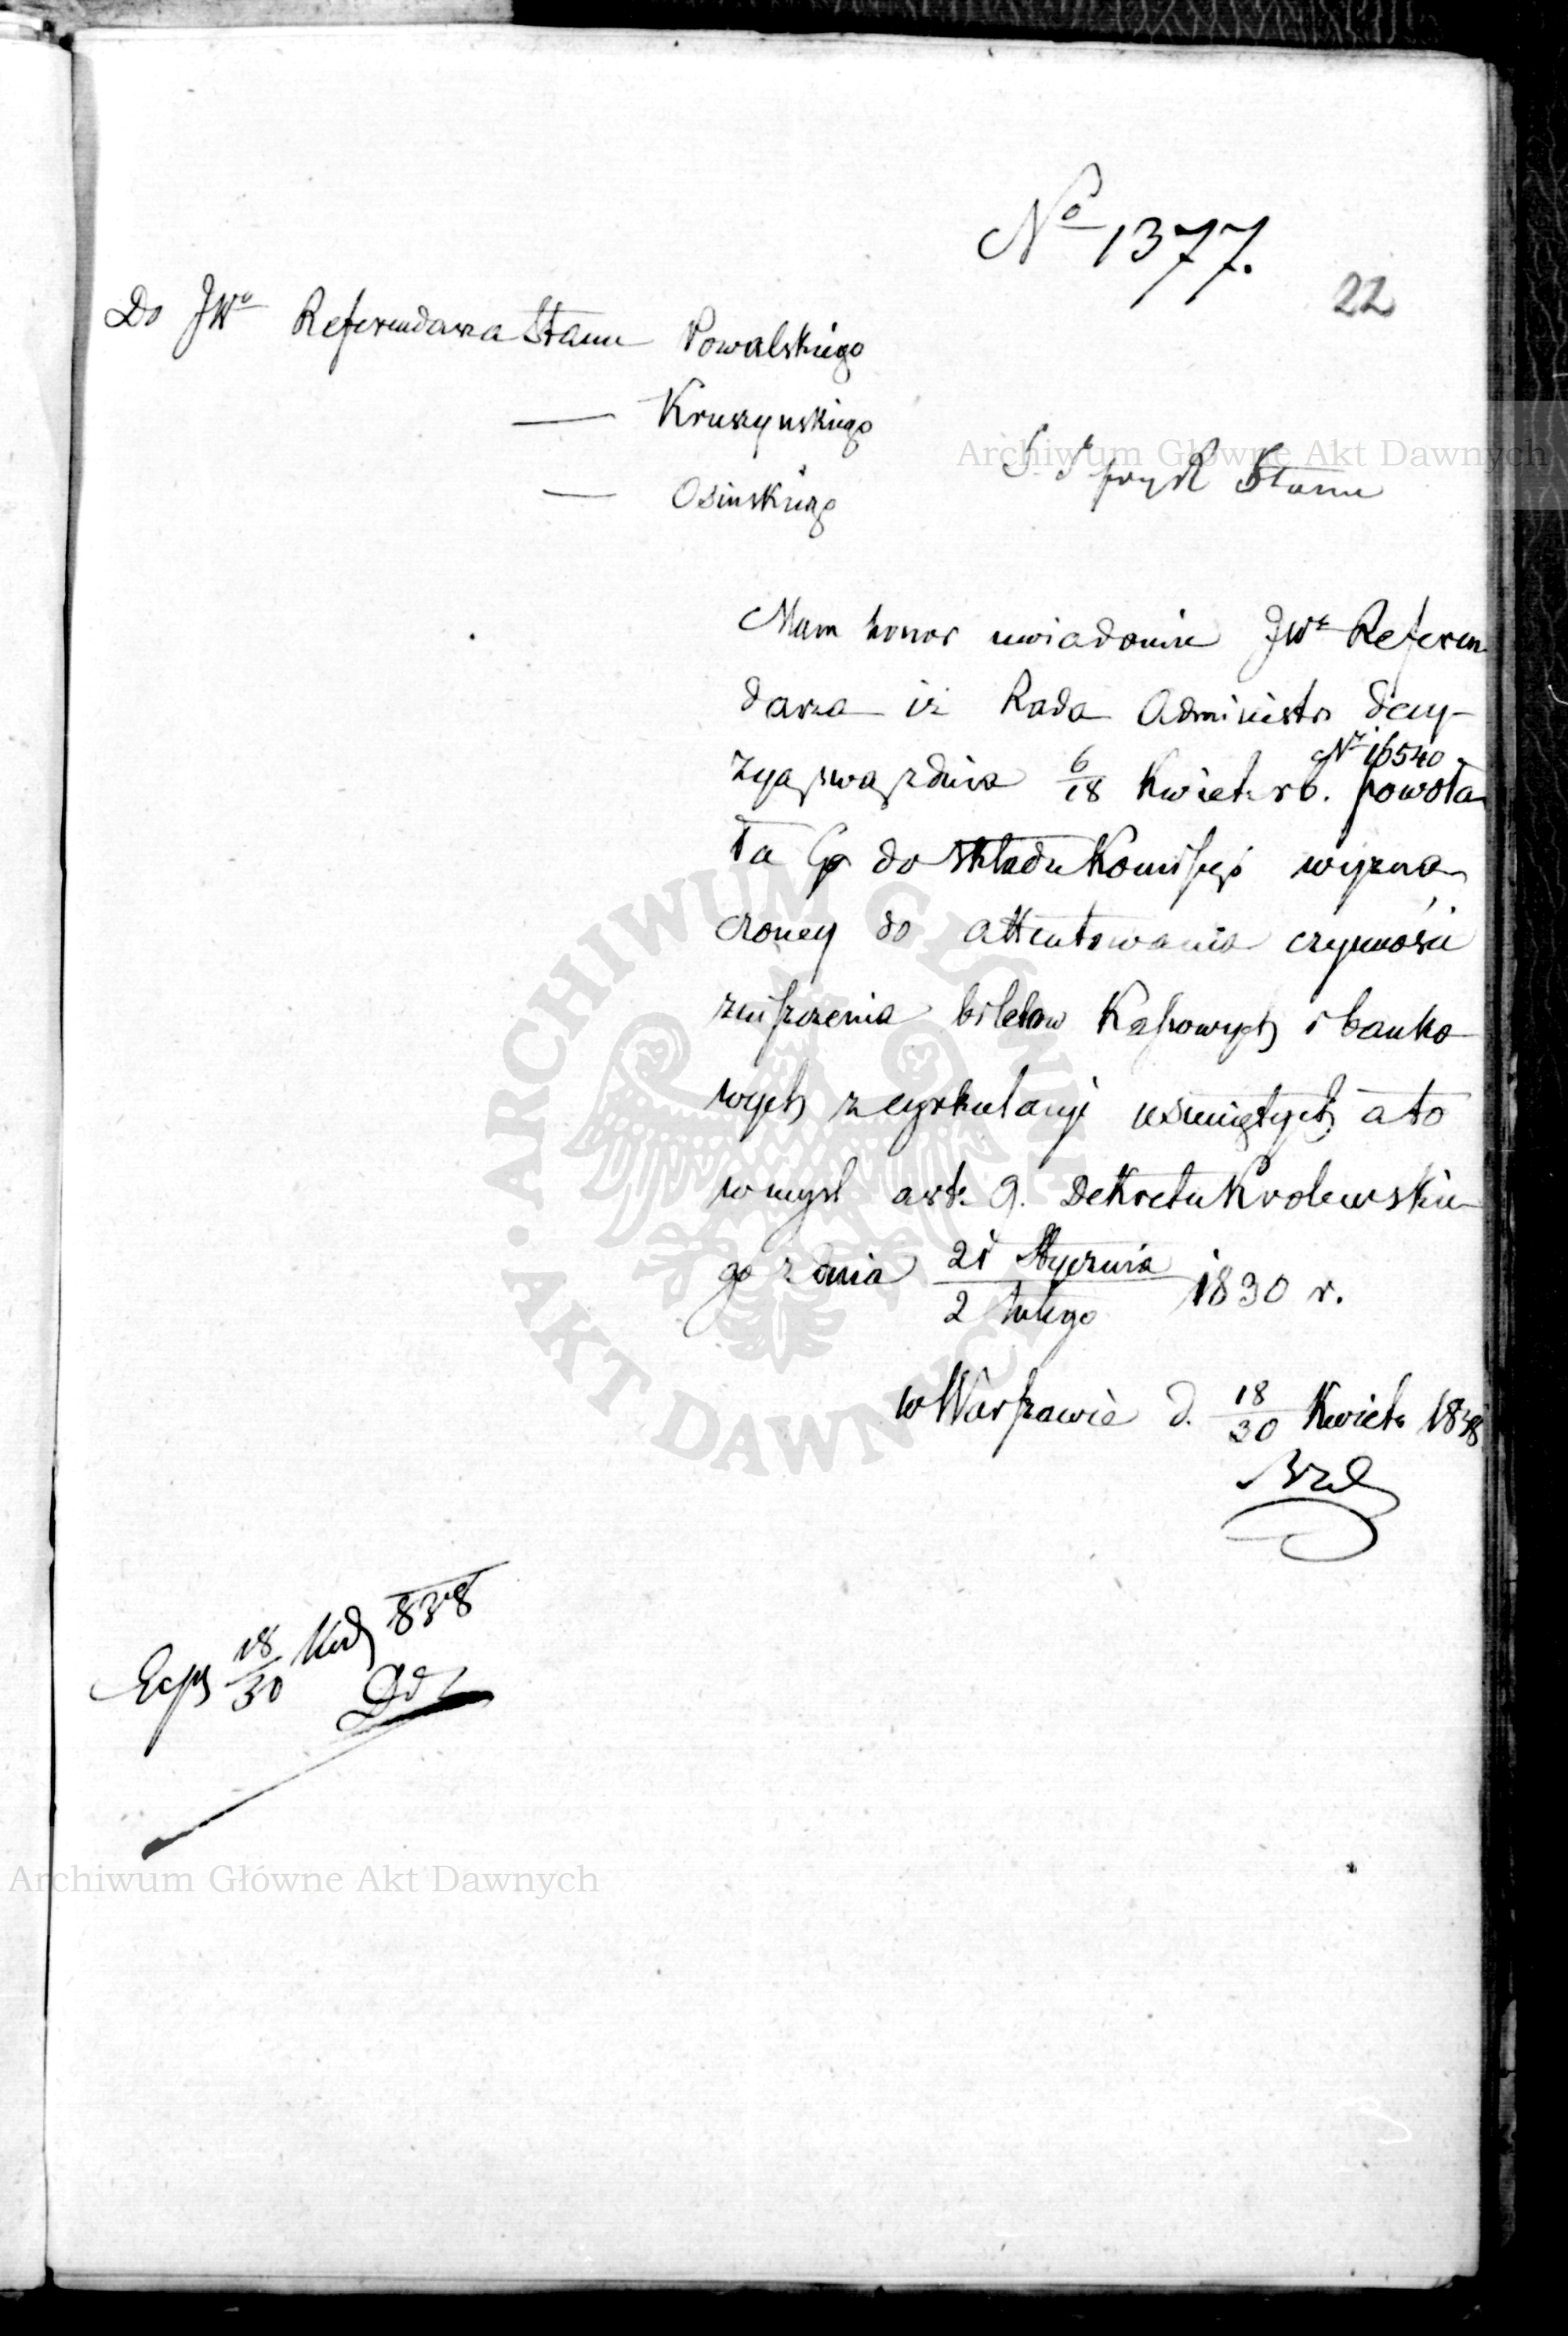 No 1377.
22
Do JWo Referendarza Stanu Powalskiego
— Kruszynskiego
— Osinskiego
Archiwum Główne Akt Dawnych
Stanu
Mam honor uwiadomić JWo Referen
darza iż Rada Administr decy-
zyą swą z dnia 6/18 Kwiet. rb. No 16540 powoła
ła Go do składu Komissyi wyzna
czoney do attentowania czynności
zniszczenia biletow Kassowych i banko
wych z cyrkulacyi usuniętych a to
w mysl art. 9. Dekretu Krolewskie
go z dnia 21 Stycznia / 2 lutego 1830 r.
w Warszawie d. 18/30 Kwiet. 1838
ARCHIWUM GŁÓWNE AKT DAWNYCH
Exp 18/30 838
Archiwum Główne Akt Dawnych